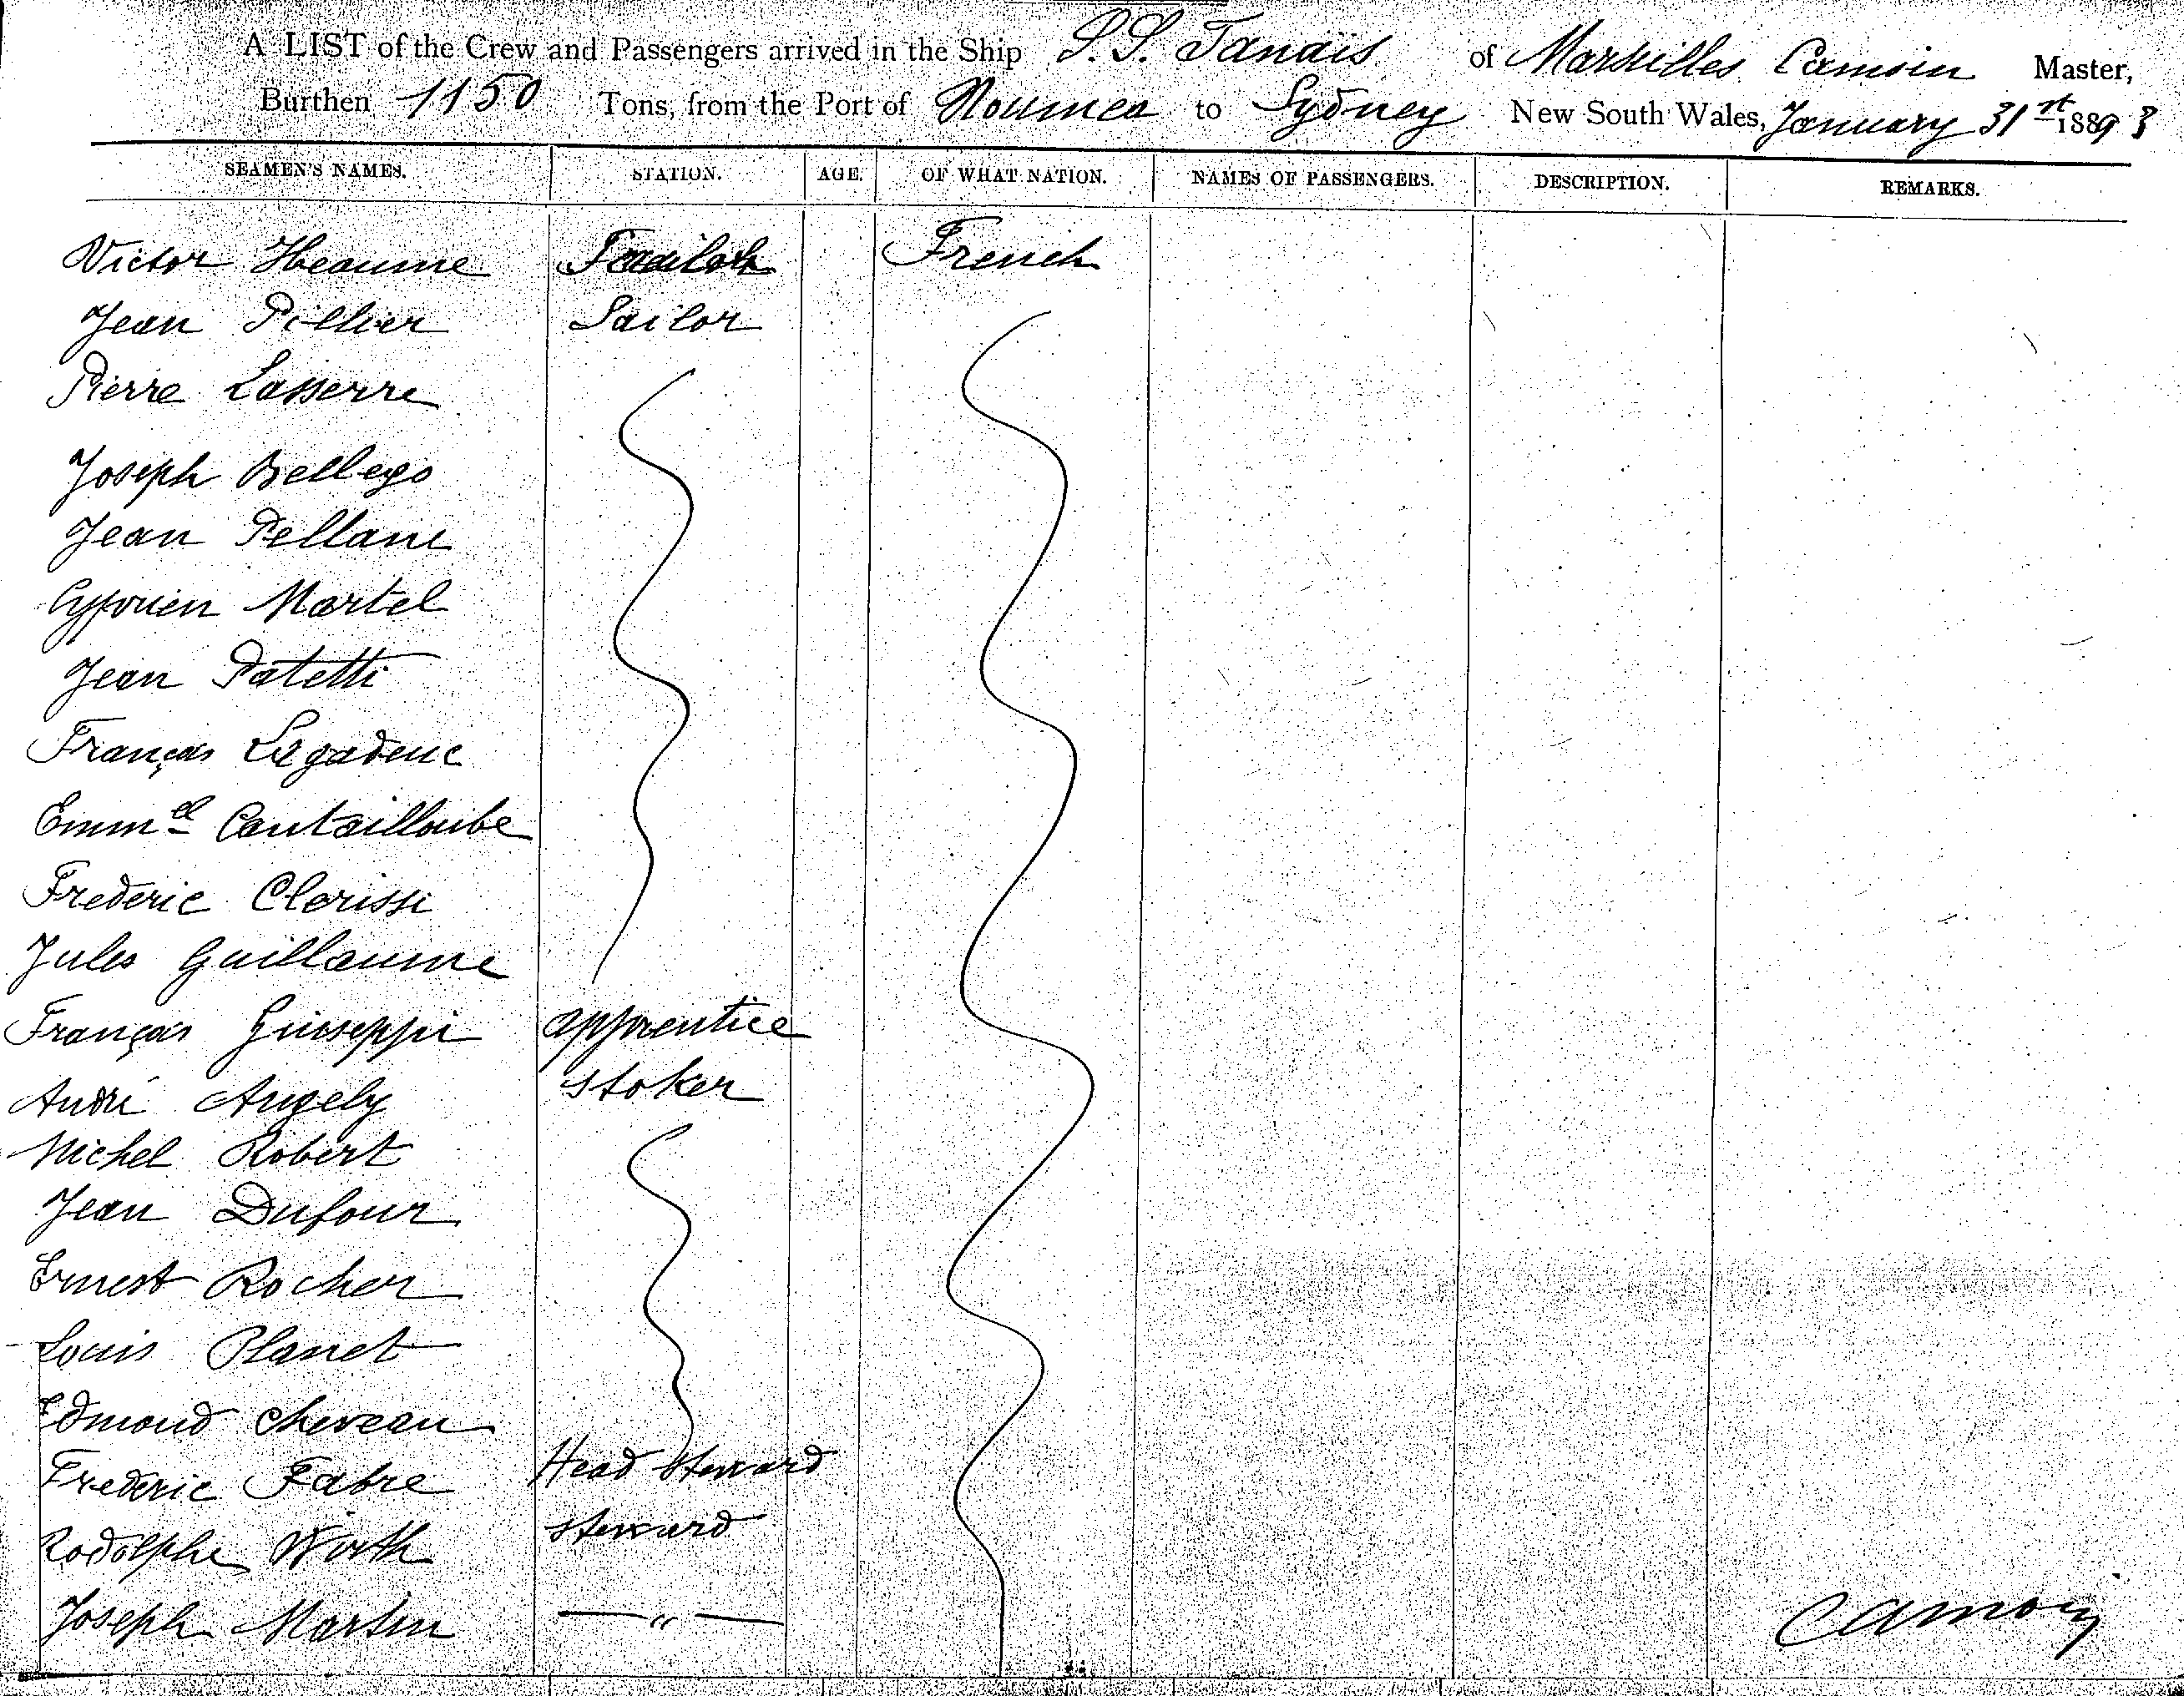 A LIST of the Crew and Passengers arrived in the Ship S.S. Tanais of Marseilles Camoin Master,
Burthen 1150 Tons, from the Port of Noumea to Sydney New South Wales, January 31st 1893
SEAMEN'S NAMES. STATION. AGE. OF WHAT NATION. NAMES OF PASSENGERS. DESCRIPTION. REMARKS.
Victor Heaume French
Jean Pillier Sailor
Pierre Lasserre
Joseph Bellego
Jean Pellane
Cyprien Martel
Jean Patetti
François Legadeuc
Emmel Cantailloube
Frederic Clerissi
Jules Guillaume
François Giuseppi apprentice
André Angely stoker
Michel Robert
Jean Dufour
Ernest Rocher
Louis Planet
Edmond Cheveau
Frederic Fabre Head Steward
Rodolphe Wirth Steward
Joseph Martin — " —
Camoin